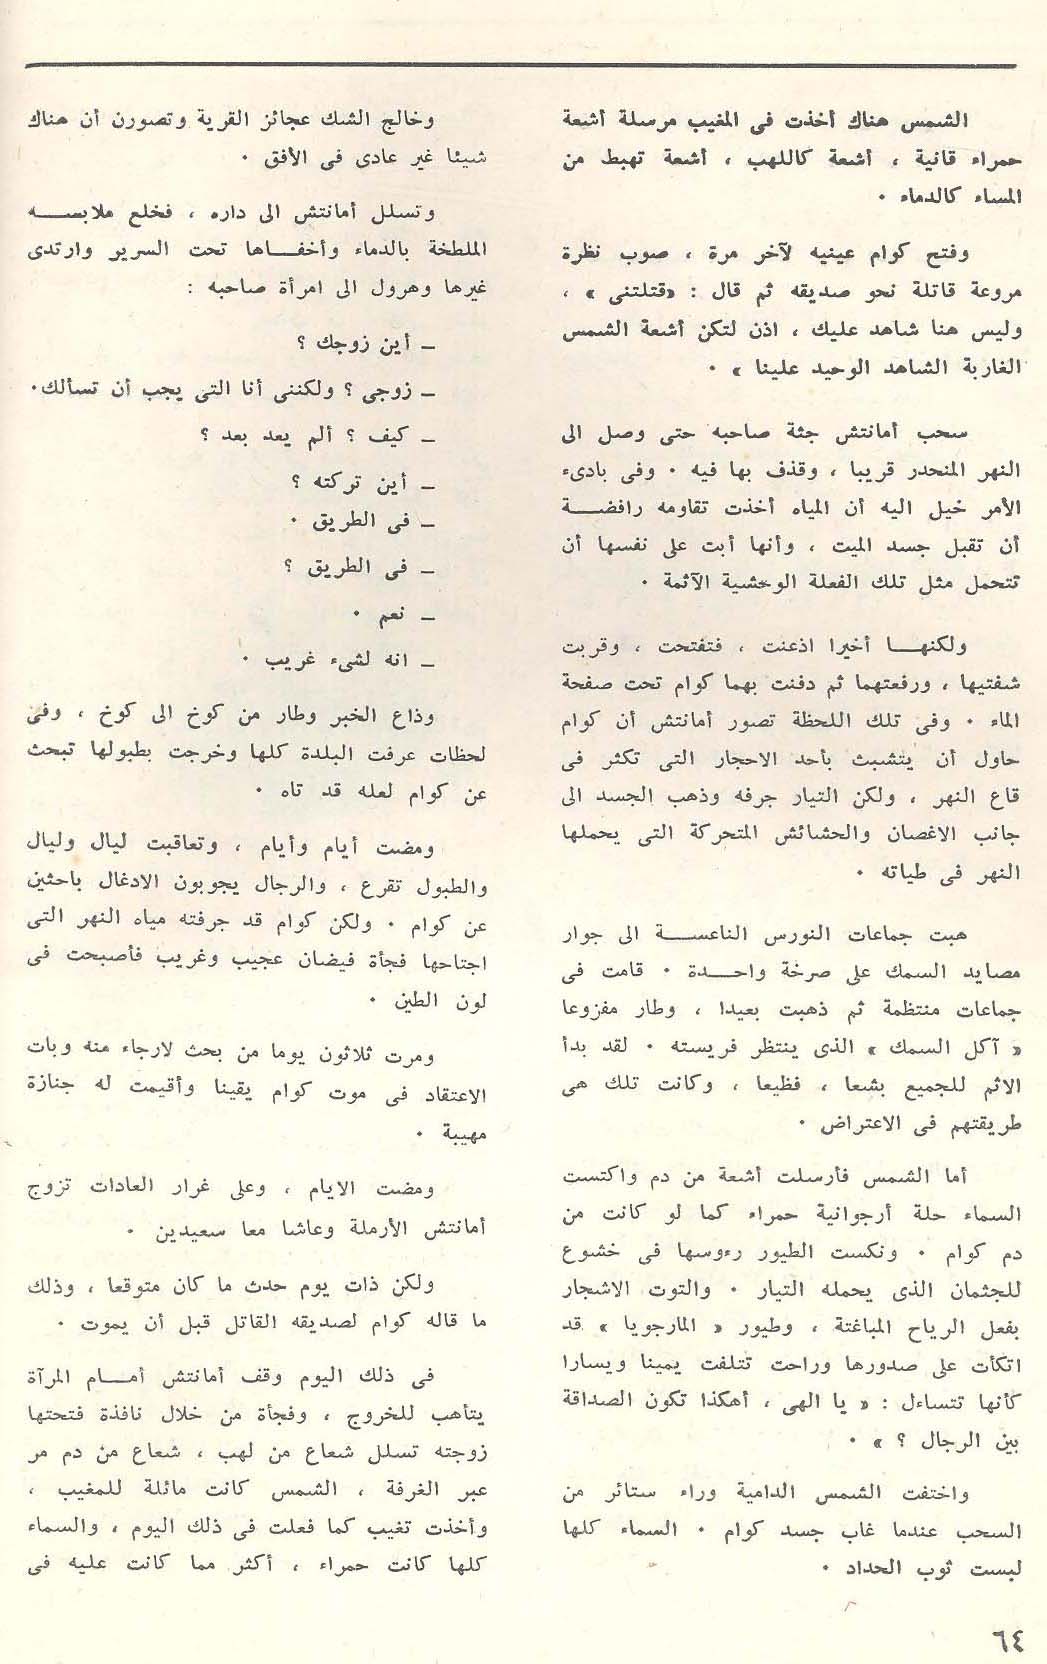 الشمس هناك أخذت فى المغيب مرسلة أشعة
حمراء قانية ، أشعة كاللهب ، أشعة تهبط من
المساء كالدماء ٠
وفتح كوام عينيه لآخر مرة ، صوب نظرة
مروعة قاتلة نحو صديقه ثم قال : «قتلتنى» ،
وليس هنا شاهد عليك ، اذن لتكن أشعة الشمس
الغاربة الشاهد الوحيد علينا » ٠
سحب أمانتش جثة صاحبه حتى وصل الى
النهر المنحدر قريبا ، وقذف بها فيه ٠ وفى بادىء
الأمر خيل اليه أن المياه أخذت تقاومه رافضة
أن تقبل جسد الميت ، وأنها أبت على نفسها أن
تتحمل مثل تلك الفعلة الوحشية الآثمة ٠
ولكنها أخيرا اذعنت ، فتفتحت ، وقربت
شفتيها ، ورفعتهما ثم دفنت بهما كوام تحت صفحة
الماء ٠ وفى تلك اللحظة تصور أمانتش أن كوام
حاول أن يتشبث بأحد الاحجار التى تكثر فى
قاع النهر ، ولكن التيار جرفه وذهب الجسد الى
جانب الاغصان والحشائش المتحركة التى يحملها
النهر فى طياته ٠
هبت جماعات النورس الناعسة الى جوار
مصايد السمك على صرخة واحدة ٠ قامت فى
جماعات منتظمة ثم ذهبت بعيدا ، وطار مفزوعا
« آكل السمك » الذى ينتظر فريسته ٠ لقد بدأ
الاثم للجميع بشعا ، فظيعا ، وكانت تلك هى
طريقتهم فى الاعتراض ٠
أما الشمس فأرسلت أشعة من دم واكتست
السماء حلة أرجوانية حمراء كما لو كانت من
دم كوام ٠ ونكست الطيور رءوسها فى خشوع
للجثمان الذى يحمله التيار ٠ والتوت الاشجار
بفعل الرياح المباغتة ، وطيور « المارجويا » قد
اتكأت على صدورها وراحت تتلفت يمينا ويسارا
كأنها تتساءل : « يا الهى ، أهكذا تكون الصداقة
بين الرجال ؟ » ٠
واختفت الشمس الدامية وراء ستائر من
السحب عندما غاب جسد كوام ٠ السماء كلها
لبست ثوب الحداد ٠
وخالج الشك عجائز القرية وتصورن أن هناك
شيئا غير عادى فى الأفق ٠
وتسلل أمانتش الى داره ، فخلع ملابسه
الملطخة بالدماء وأخفاها تحت السرير وارتدى
غيرها وهرول الى امرأة صاحبه :
ـ أين زوجك ؟
ـ زوجى ؟ ولكننى أنا التى يجب أن تسألك٠
ـ كيف ؟ ألم يعد بعد ؟
ـ أين تركته ؟
ـ فى الطريق ٠
ـ فى الطريق ؟
ـ نعم ٠
ـ انه لشىء غريب ٠
وذاع الخبر وطار من كوخ الى كوخ ، وفى
لحظات عرفت البلدة كلها وخرجت بطبولها تبحث
عن كوام لعله قد تاه ٠
ومضت أيام وأيام ، وتعاقبت ليال وليال
والطبول تقرع ، والرجال يجوبون الادغال باحثين
عن كوام ٠ ولكن كوام قد جرفته مياه النهر التى
اجتاحها فجأة فيضان عجيب وغريب فأصبحت فى
لون الطين ٠
ومرت ثلاثون يوما من بحث لارجاء منه وبات
الاعتقاد فى موت كوام يقينا وأقيمت له جنازة
مهيبة ٠
ومضت الايام ، وعلى غرار العادات تزوج
أمانتش الأرملة وعاشا معا سعيدين ٠
ولكن ذات يوم حدث ما كان متوقعا ، وذلك
ما قاله كوام لصديقه القاتل قبل أن يموت ٠
فى ذلك اليوم وقف أمانتش أمام المرآة
يتأهب للخروج ، وفجأة من خلال نافذة فتحتها
زوجته تسلل شعاع من لهب ، شعاع من دم مر
عبر الغرفة ، الشمس كانت مائلة للمغيب ،
وأخذت تغيب كما فعلت فى ذلك اليوم ، والسماء
كلها كانت حمراء ، أكثر مما كانت عليه فى
٦٤